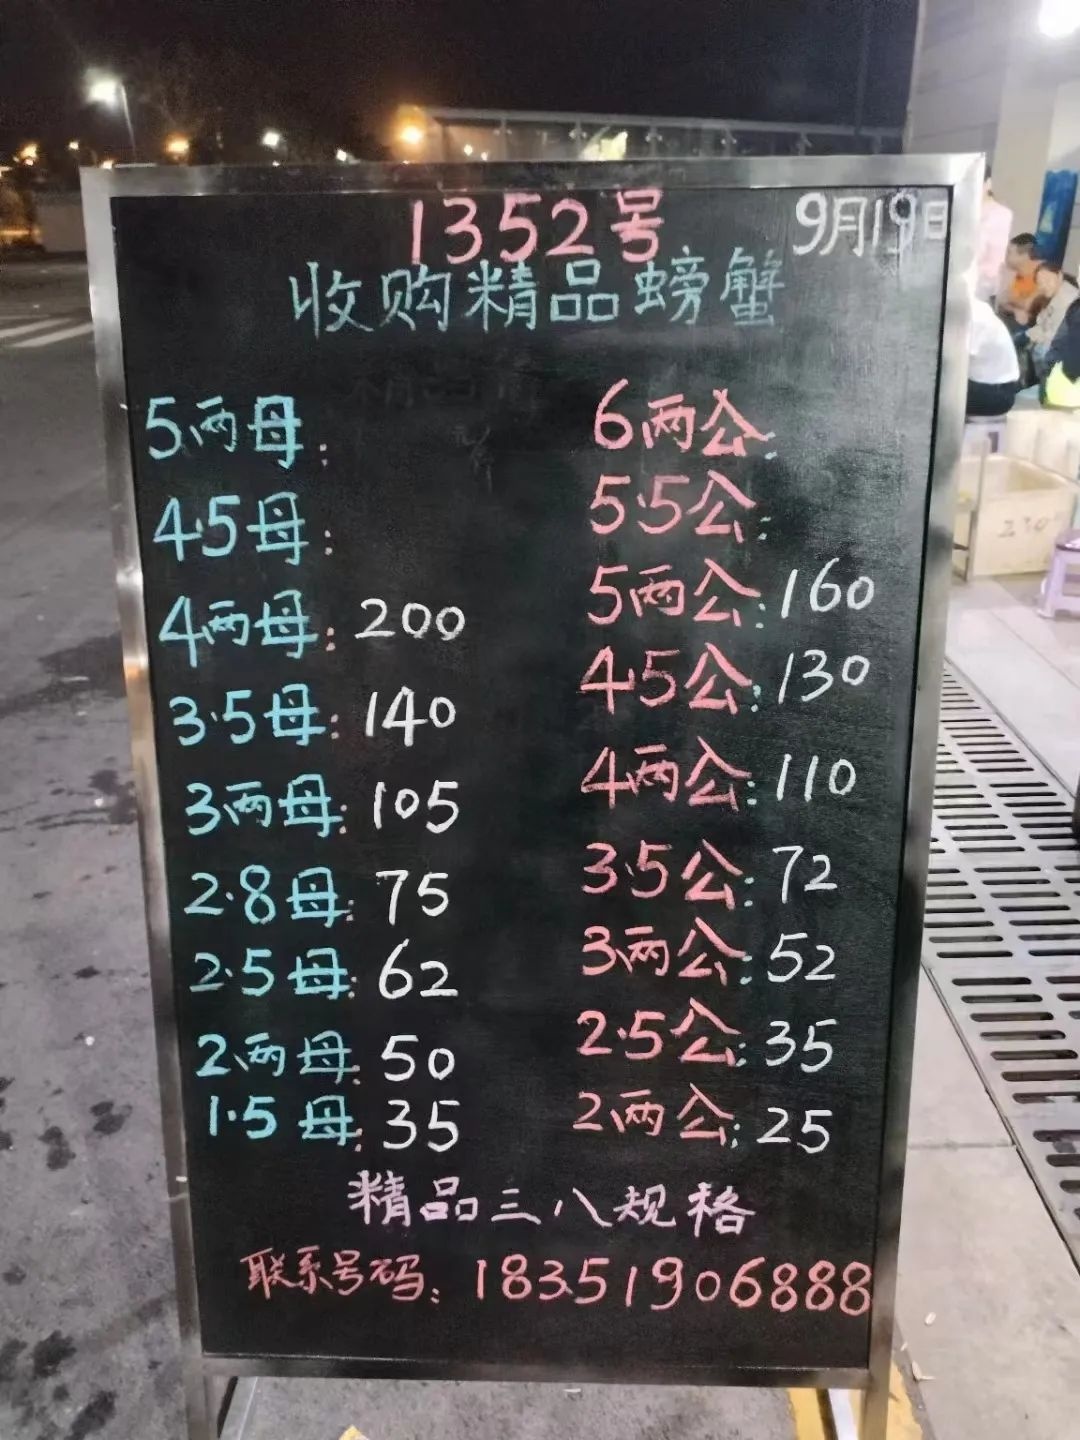 1352号 9月19日
收购精品螃蟹
5两母: 6两公:
4.5母: 5.5公:
4两母: 200 5两公: 160
3.5母: 140 4.5公: 130
3两母: 105 4两公: 110
2.8母: 75 3.5公: 72
2.5母: 62 3两公: 52
2两母: 50 2.5公: 35
1.5母: 35 2两公: 25
精品三八规格
联系号码: 18351906888